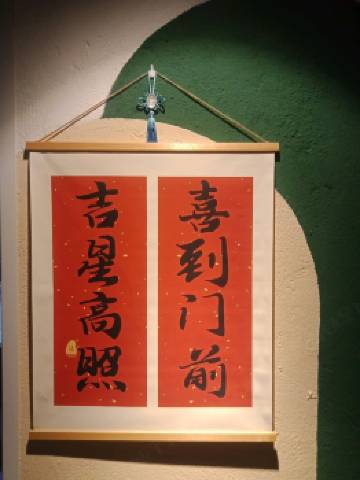 喜到门前
吉星高照